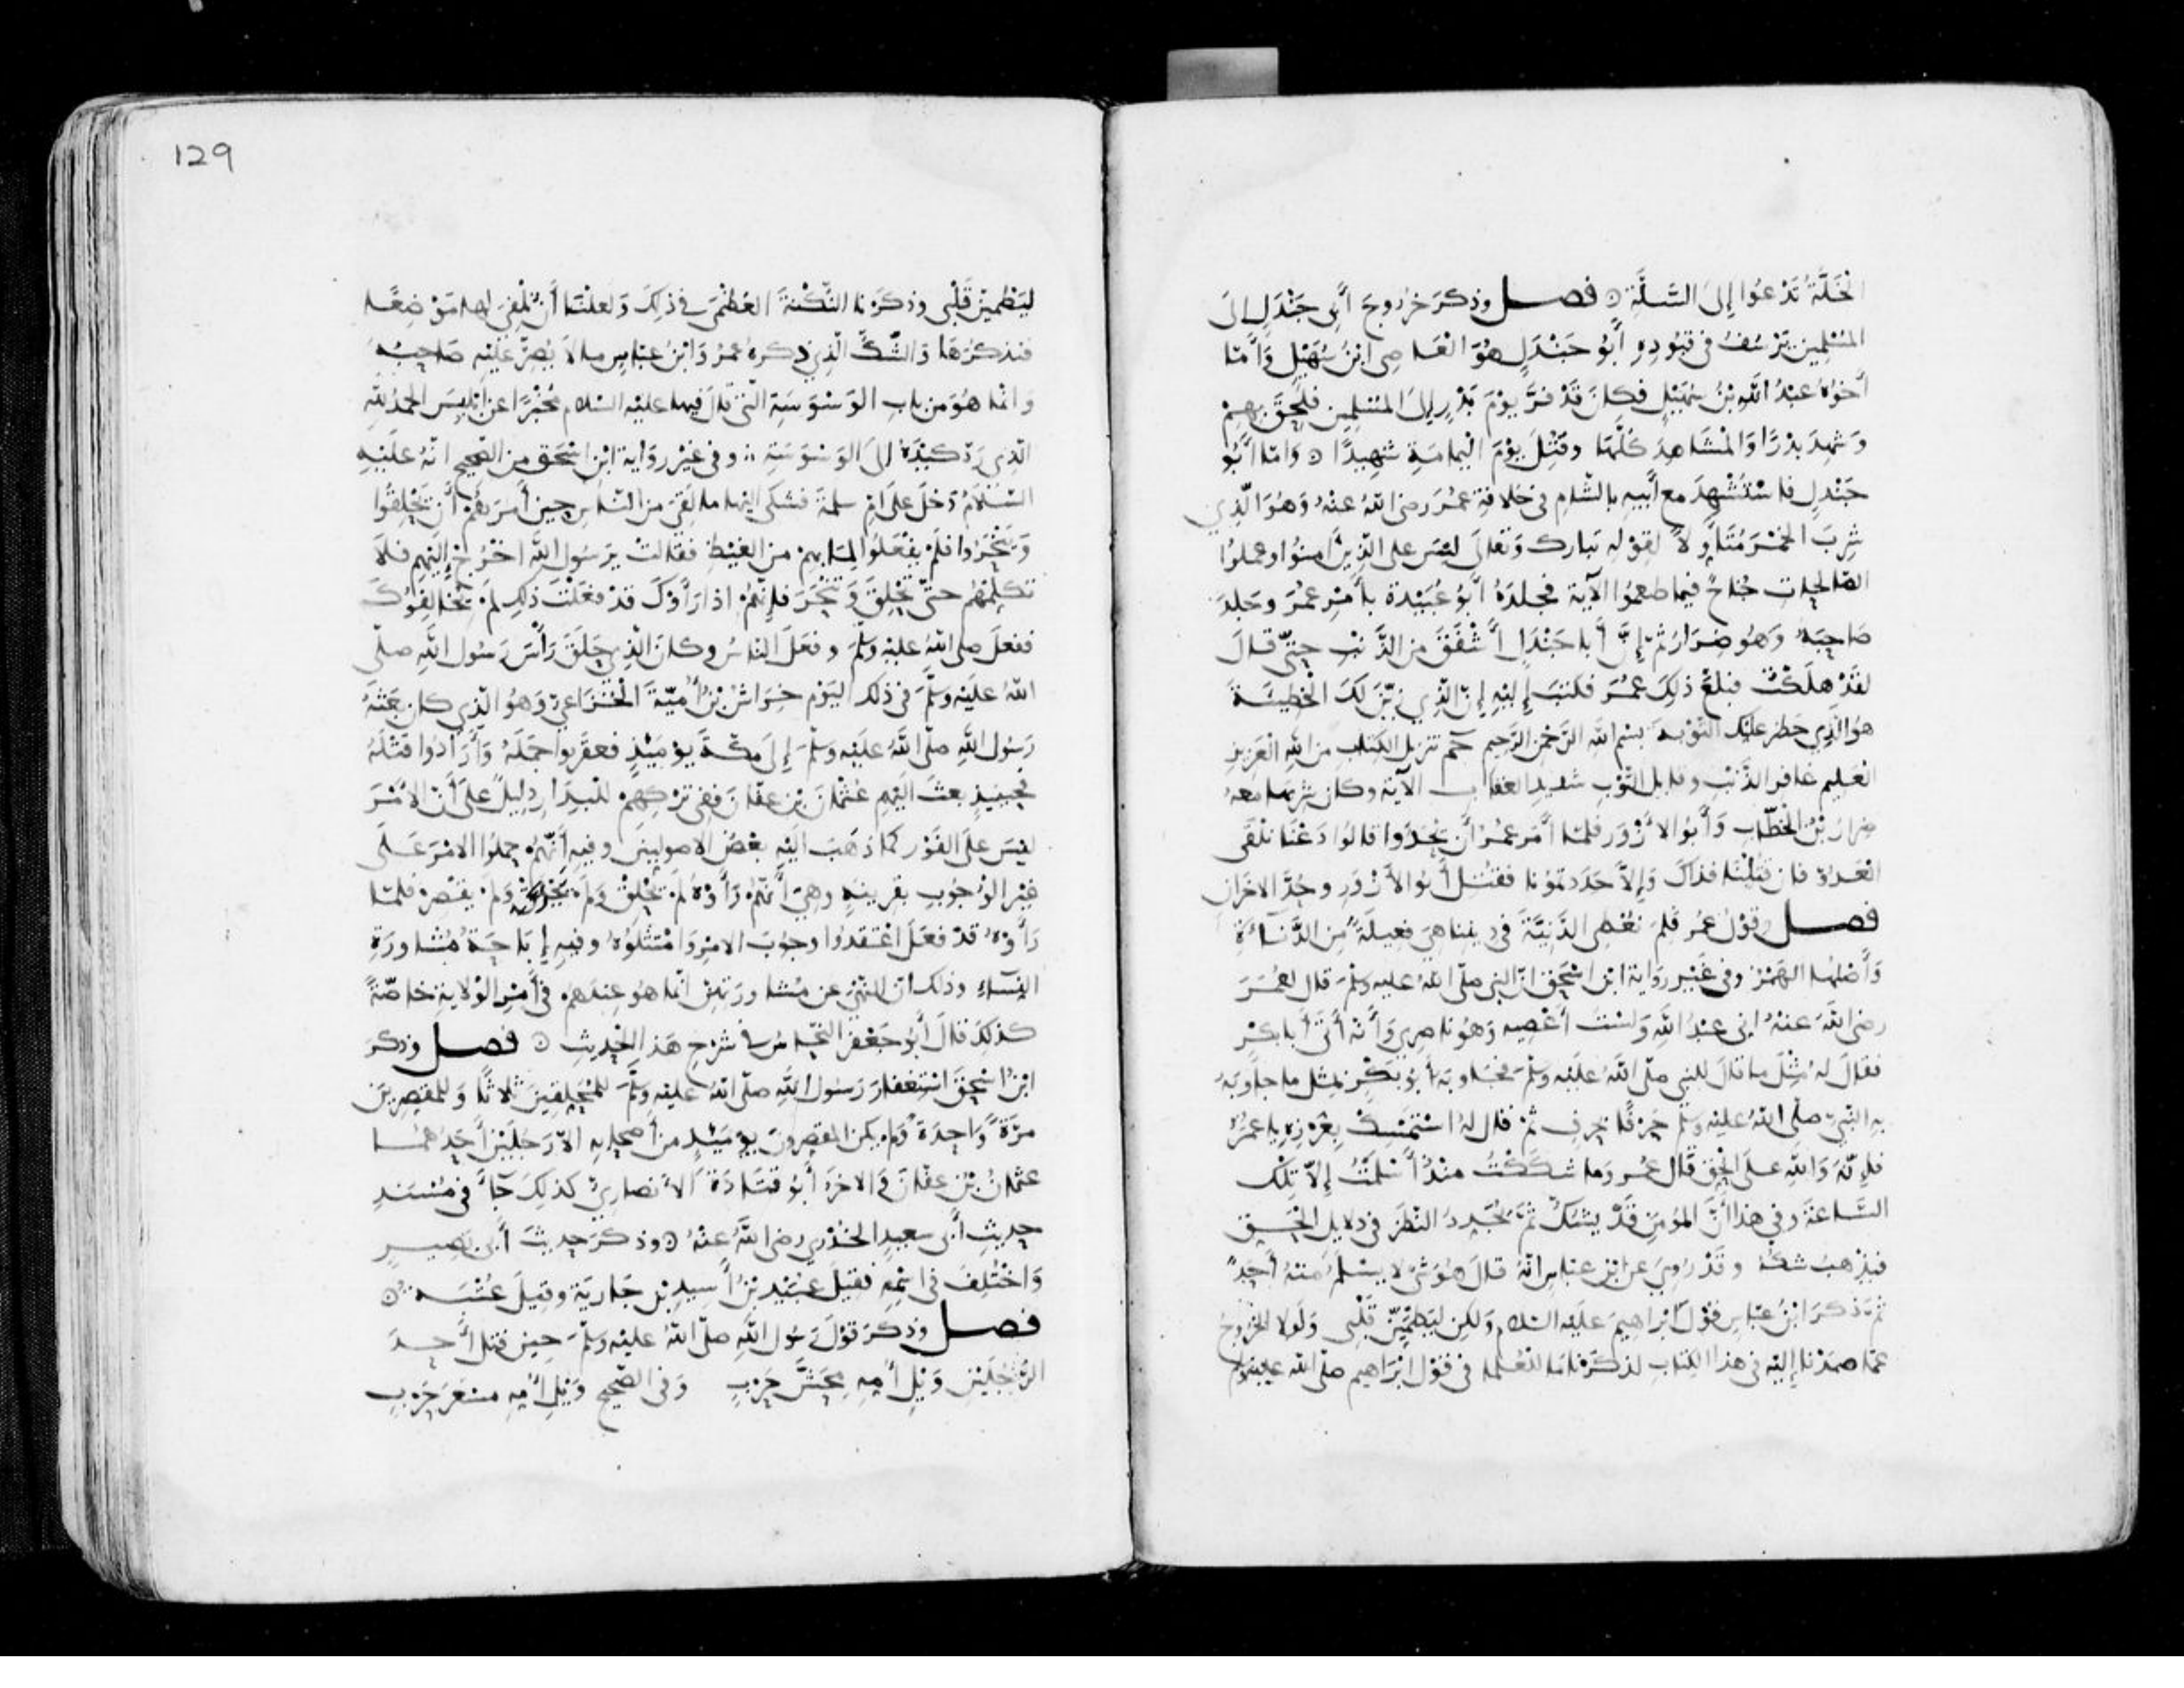 الخَلَّةُ تَدْعُوا إِلَى السَّلَّةِ ۞ فصل وذكرَ خرُوجَ أَبِي جَنْدَلٍ الَى
المُسْلِمين يَرْسُفُ في قيُودِهِ أَبُو جَنْدَلٍ هُوَ العَاصِي ابْنُ سُهَيْلٍ وَأَمّا
أَخوُهُ عبْدُ اللهِ بْنُ سُهَيْلٍ فكانَ قَدْ فرَّ يوْمَ بَدْرٍ إِلىَ المُسْلِمِين فلَحِقَ بهِمْ
وَشهدَ بدْرًا وَالمْشَاهدَ كُلَّهَا وقُتِلَ يوْمَ الْيمامَةِ شهِيدًا ۞ وَامّا أَبُو
جَنْدلٍ فاسْتُشْهدَ مع أَبيهِ بالشّام في خلافةِ عُمرَ رضى اللهُ عنْهُ وَهُوَ الّذِي
شرِبَ الخمْرَ مُتَأَوِّلاً لقوْلِهِ تبارك وَتعَالَى ليْسَ على الّذِينَ امنُوا وعملوُا
الصّالِحاتِ جُناحٌ فيما طعمُوا الآية فجلدَهُ أَبُو عُبَيْدة بأَمْرِ عمُرَ وجَلدَ
صَاحِبَهُ وَهُو ضِرَارٌ ثمّ إنَّ أَبا جَنْدَلٍ أَشْفَقَ مِن الذَّنْبِ حتّى قالَ
لقَدْ هلَكْتُ فبلغَ ذلِكَ عمُرَ فكتبَ إِليْهِ إِنّ الّذِي زيَّنَ لَكَ الْخطِيئَةَ
هوَ الّذِي حظرَ عليْك التّوْبةَ بسْمِ اللهِ الرّحْمنِ الرّحِيمِ حم تنزيل الكتاب من الله العَزيزِ
العَليم غافر الذّنبِ وقابل التّوْبِ شديدِ العقاب الآية وكان شربَها معهُ
ضرارُ بْنُ الخطّابِ وَأَبُو الأَزْوَر فلمّا أَمَر عمُرُ أَنْ يُحَدُّوا قالوُا دَعْنا نلْقَى
العَدُوّ فان قتِلْنا فذاكَ وَإلاّ حَدَدتموُنا فقُتِلَ أَبُو الأَزْوَرِ وحُدَّ الاخَران
فصل وقوْلُ عمُر فَلِمَ نعُطِى الدَّنيَّةَ في دِيننا هِيَ فعيلَةٌ مِن الدَّناءَةِ
وَأَصْلهُا الهَمْزُ وفي غَيْر رِوَاية ابْنِ اسْحقَ انّ النبي صلّى اللهُ عليه وسلّم قال لعُمَرَ
رضى اللهُ عنهُ انى عبْدُ اللهِ وَلسْتُ أَعْصِيهِ وَهُو ناصِرِي وَأَنّهُ أَتَى أَبا بكْرٍ
فقالَ لهُ مثْلَ ما قالَ للنبيِ صلّى اللهُ عليْه وسلّم فجَاوبَهُ أَبُو بَكْرٍ بمثل ما جاوَبَهُ
بهِ النّبِيّ صلّى اللهُ عليْهِ وسلّم حرْفًا بحرفٍ ثمّ قال لهُ اسْتمْسكْ بغَرْزِهِ يا عمُرُ
فإنّهُ وَاللهِ علَى الحقِّ قَال عُمَر وَما شكَكْتُ منذُ أَسْلمْتُ إِلاّ تِلْك
السَّاعَةَ وفي هذا أَنّ المؤمِنَ قَدْ يشُكُّ ثمَّ يُجَدِدُ النّظَرَ في دلايل الحَقِ
فيذْهبُ شكُّهُ وقَدْ رُوِيَ عنِ ابْن عبّاسٍ انّهُ قالَ هُوَ شىْ لا يسْلَمُ منْهُ أَحدٌ
ثمَّ ذكرَ ابْنُ عبّاسٍ قوْلَ ابْراهيمَ عليْه السّلام وَلكِن ليَطمَئِنَّ قَلْبِى وَلَولا الخرُوجُ
عمّا صمَدْنا إِليْهِ في هذا الكِتابِ لذكَرْنا ما للعُلما في قوْل ابْرَاهيم صلّى الله عليه وسلم
ليَطْمَئِنّ قَلْبِى وذكَرْنا النُّكْتةَ العُظْمَى في ذلِكَ وَلعلّنا أَنْ نُلْفِىَ لهَا مَوْضِعًا
فنذكُرَهَا وَالشّكّ الّذِي ذكرهُ عمَرُ وَابْنُ عبّاسٍ مالاَ يُصِرُّ عليْهِ صَاحِبُهُ
وَانّما هُوَ من بابِ الوَسْوَسَةِ التي قالَ فيها عليْه السّلام مُخْبِرًا عن ابْليسَ الحمدُ للهِ
الّذِي رَدَّ كيْدَهُ الىَ الوَسْوَسَةِ ۞ وفي غيْر رِوَاية ابْن اسْحَقَ من الصّحيح انّهُ علَيْهِ
السّلاَمُ دَخلَ علَى امّ سلمَةَ فشكَى اليْها ما لقِيَ من النّاسِ حينَ أَمرَهُمْ أَن يَحْلِقُوا
وَيَنْحَرُوا فلَمْ يفْعَلوُا لمِا بهِمْ مِن الغيْظِ فقالتْ يرَسُول اللهِ اخْرُجْ إِليْهِم فلاَ
تكلِّمْهُم حتّى تحْلِقَ وَتنْحَرَ فإنّهُمْ اذا رَأَوْكَ قدْ فعَلْتَ ذلِك لمْ يُخالِفُوكَ
ففعلَ صلى اللهُ عليْهِ وسَلّم وفعَلَ الناسُ وكانَ الّذِي حَلَقَ رَأْسَ رَسُول اللهِ صلّى
اللهُ عليْه وسلّم في ذلك اليَوْم خِرَاشُ بْنُ أُميّةَ الْخُزَاعِيّ وَهوُ الّذِي كان بعَثَهُ
رَسُولُ اللهِ صلّى اللهُ عليْه وسلّم إِلى مكّةَ يوْمَئِذٍ فعقَروا جمَلَهُ وَأَرَادُوا قتْلَهُ
فحِينيذٍ بعثَ اليْهِم عثْمانَ بْن عفّانَ ففي ترْكِهِمْ للْبِدَارِ دلِيلٌ علَى أَنّ الأَمْرَ
ليْسَ علَى الفَوْر كما ذهَبَ اليْهِ بعْضُ الاصوليينَ وفيهِ أَنّهُمْ حملوُا الامْرَ علَى
غيْرِ الوُجُوبِ بقرِينهٍ وهِيَ أَنّهُمْ رَأَوْهُ لمْ يحْلِقْ وَلَمْ يَنْحَرْ وَلمْ يقَصِرْ فلمّا
رَأَوْهُ قدْ فعَلَ اعْتقدُوا وجوُبَ الامْرِ وَامْتثَلوُهُ وفيهِ إِباحَةُ مُشاورَةِ
النّسَاءِ وذلك انّ النّهْىَ عن مشاورَتهِنّ انّما هُو عندهُمْ في أَمْرِ الوْلايةِ خاصّةً
كذلِكَ قالَ أَبُو جَعْفَرٍ النّحّاسُ في شرْحِ هَذا الْحَدِيثِ ۞ فصل وذكرَ
ابْنُ اسْحقَ اسْتِغفارَ رَسُول اللهِ صلّى اللهُ عليْهِ وسلّم للْمُحَلِقينَ ثلاثًا وَللمُقَصِرِينَ
مرّةً وَاحِدَةً وَلمْ يكن المقصِرُونَ يوْمَئِذٍ من أَصْحابِهِ الاّ رَجُليْنِ أَحَدُهُمَا
عثمانُ بْنُ عفّانَ وَالاخرُ أَبُو قتَادَةَ الأَنصارِيُّ كذلِكَ جَاءَ في مُسْنَدِ
حدِيثِ أَبى سعيدٍ الخدْرِي رضى اللهُ عنْهُ ۞ وذكرَ حدِيثَ أَبى بَصِيرٍ
وَاخْتُلِفَ في اسْمِهِ فقيلَ عبُيْد بْنُ أَسيدِ بْن جَارِيَة وقيلَ عُتْبَة ۞
فصل وذكرَ قوْلَ رَسُول اللهِ صلّى اللهُ عليْهِ وسلّم حين قتل أَحدَ
الرّجُليْنِ وَيْلِ أُمّهِ مِحَشَّ حَرْبٍ وَفى الصّحِيح وَيْلِ أُمّهِ مسْعَرَ حَرْبٍ
129